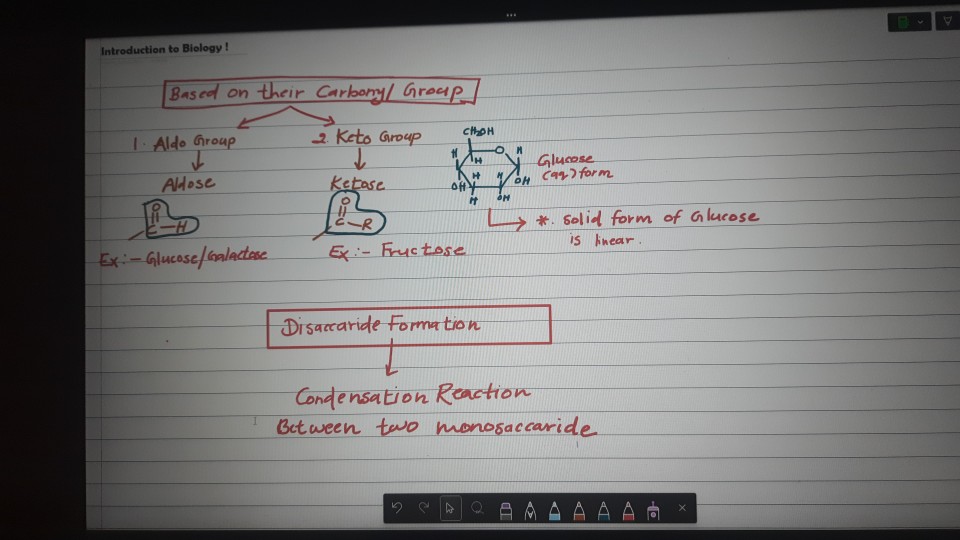 Introduction to Biology !
Based on their Carbonyl Group
1. Aldo Group
2. Keto Group
Aldose
Ketose
O
C-H
O
C-R
Ex:- Glucose/Galactose
Ex:- Fructose
CH2OH
O
H
H
H
H
H
OH
OH
H
OH
Glucose
(aq) form
*. Solid form of Glucose
is linear.
Disaccaride Formation
Condensation Reaction
Between two monosaccaride